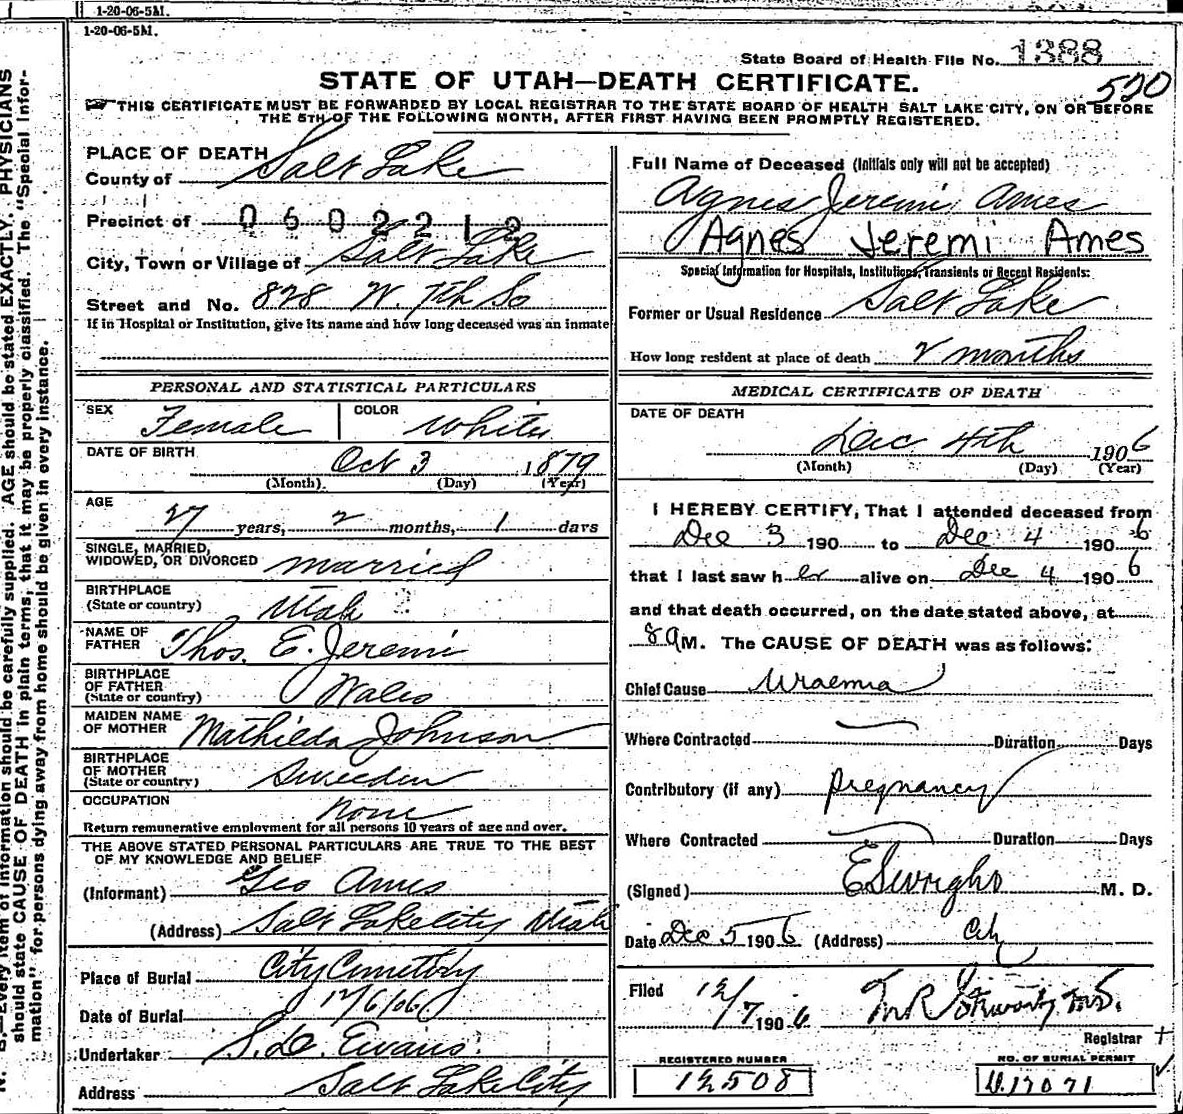 1-20-06-5M.
1-20-06-5M.
State Board of Health File No. 1388
STATE OF UTAH—DEATH CERTIFICATE. 520
THIS CERTIFICATE MUST BE FORWARDED BY LOCAL REGISTRAR TO THE STATE BOARD OF HEALTH SALT LAKE CITY, ON OR BEFORE
THE 5TH OF THE FOLLOWING MONTH, AFTER FIRST HAVING BEEN PROMPTLY REGISTERED.
PLACE OF DEATH
County of Salt Lake
Precinct of 0602212
City, Town or Village of Salt Lake
Street and No. 828 W. 7th So
If in Hospital or Institution, give its name and how long deceased was an inmate
Full Name of Deceased (Initials only will not be accepted)
Agnes Jeremi Ames
Agnes Jeremi Ames
Special Information for Hospitals, Institutions, Transients or Recent Residents:
Former or Usual Residence Salt Lake
How long resident at place of death 2 months
PERSONAL AND STATISTICAL PARTICULARS
SEX Female COLOR White
DATE OF BIRTH Oct 3 1879
(Month) (Day) (Year)
AGE 27 years, 2 months, 1 days
SINGLE, MARRIED,
WIDOWED, OR DIVORCED married
BIRTHPLACE
(State or country) Utah
NAME OF
FATHER Thos. E. Jeremi
BIRTHPLACE
OF FATHER
(State or country) Wales
MAIDEN NAME
OF MOTHER Mathilda Johnson
BIRTHPLACE
OF MOTHER
(State or country) Sweeden
OCCUPATION None
Return remunerative employment for all persons 10 years of age and over.
THE ABOVE STATED PERSONAL PARTICULARS ARE TRUE TO THE BEST
OF MY KNOWLEDGE AND BELIEF
(Informant) Geo Ames
(Address) Salt Lake City Utah
Place of Burial City Cemetery
Date of Burial 12/6/06
Undertaker S. D. Evans.
Address Salt Lake City
MEDICAL CERTIFICATE OF DEATH
DATE OF DEATH
Dec 4th 1906
(Month) (Day) (Year)
I HEREBY CERTIFY, That I attended deceased from
Dec 3 190 to Dec 4 1906
that I last saw her alive on Dec 4 1906
and that death occurred, on the date stated above, at
8 A M. The CAUSE OF DEATH was as follows:
Chief Cause Uraemia
Where Contracted Duration Days
Contributory (if any) pregnancy
Where Contracted Duration Days
(Signed) E S Wright M. D.
Date Dec 5 1906 (Address) City
Filed 12/7 1906
Registrar
REGISTERED NUMBER
12508
NO. OF BURIAL PERMIT
U.17071
N. B.—Every item of information should be carefully supplied. AGE should be stated EXACTLY. PHYSICIANS
should state CAUSE OF DEATH in plain terms, that it may be properly classified. The "Special Infor-
mation" for persons dying away from home should be given in every instance.